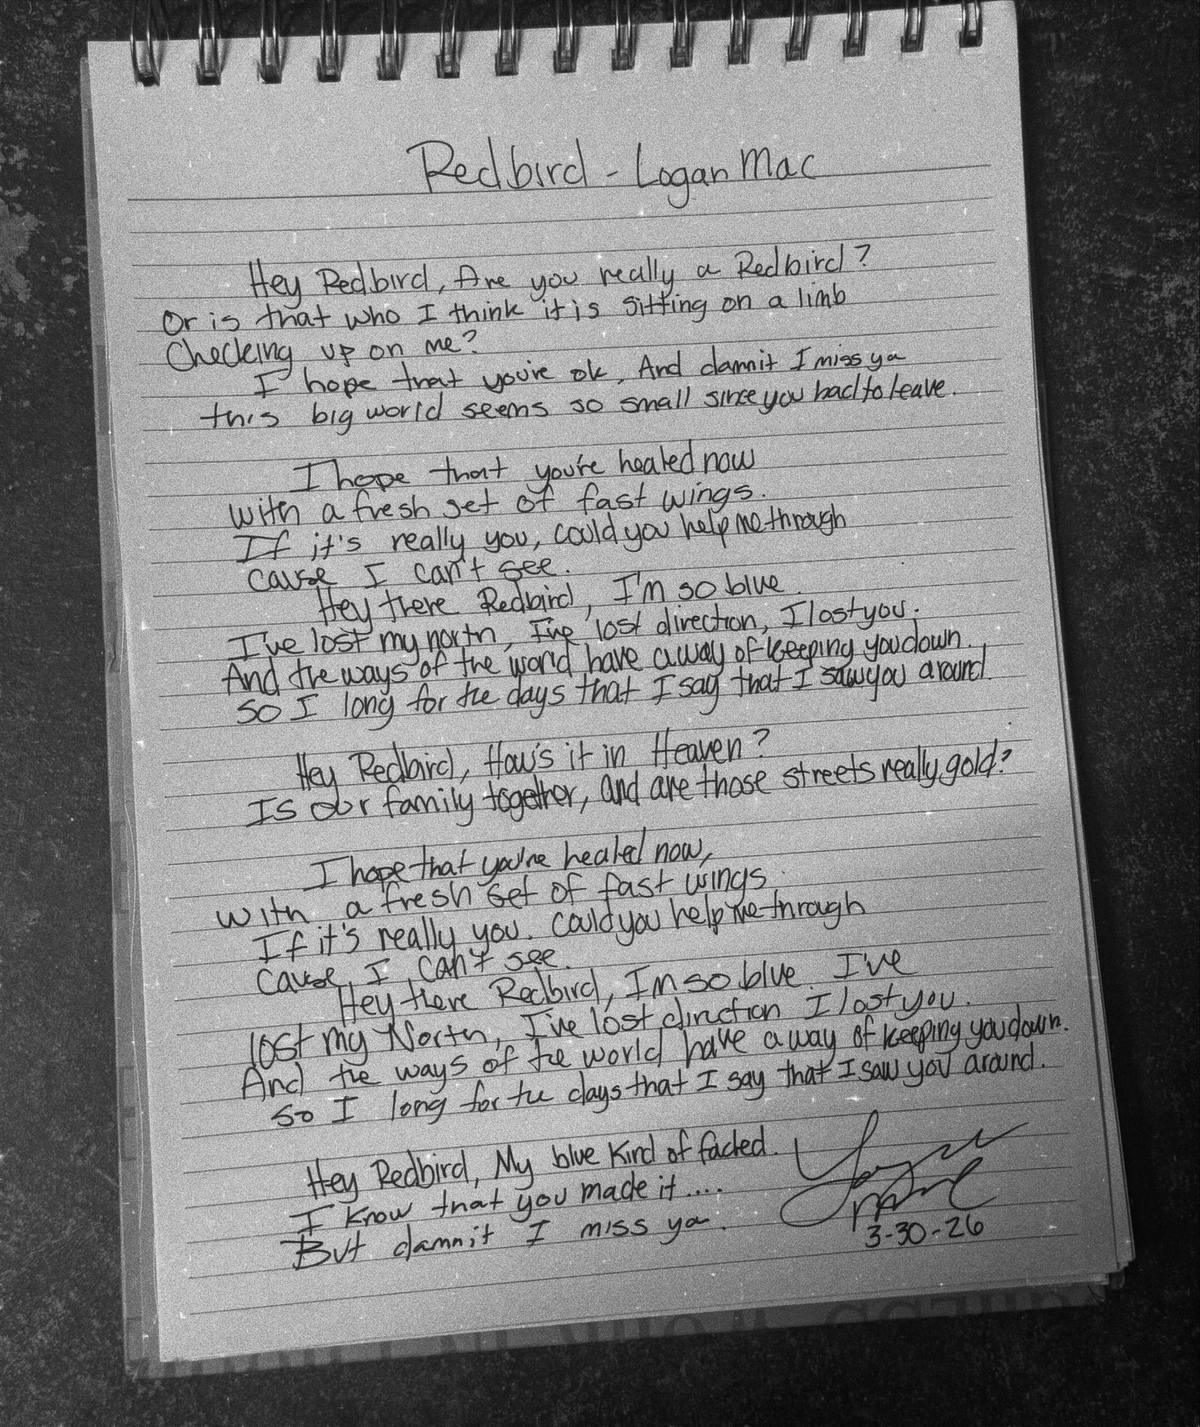 Redbird - Logan Mac
Hey Redbird, Are you really a Redbird?
Or is that who I think it is sitting on a limb
Checking up on me?
I hope that you're ok, And damnit I miss ya
this big world seems so small since you had to leave.
I hope that you're healed now
with a fresh set of fast wings.
If it's really you, could you help me through
cause I can't see.
Hey there Redbird, I'm so blue.
I've lost my north, I've lost direction, I lost you.
And the ways of the world have a way of keeping you down.
So I long for the days that I say that I saw you around.
Hey Redbird, How's it in Heaven?
Is our family together, and are those streets really gold?
I hope that you're healed now,
with a fresh set of fast wings.
If it's really you. Could you help me through
Cause I can't see.
Hey there Redbird, I'm so blue. I've
lost my North, I've lost direction I lost you.
And the ways of the world have a way of keeping you down.
So I long for the days that I say that I saw you around.
Hey Redbird, My blue kind of faded.
I know that you made it....
But damnit I miss ya.
3-30-26